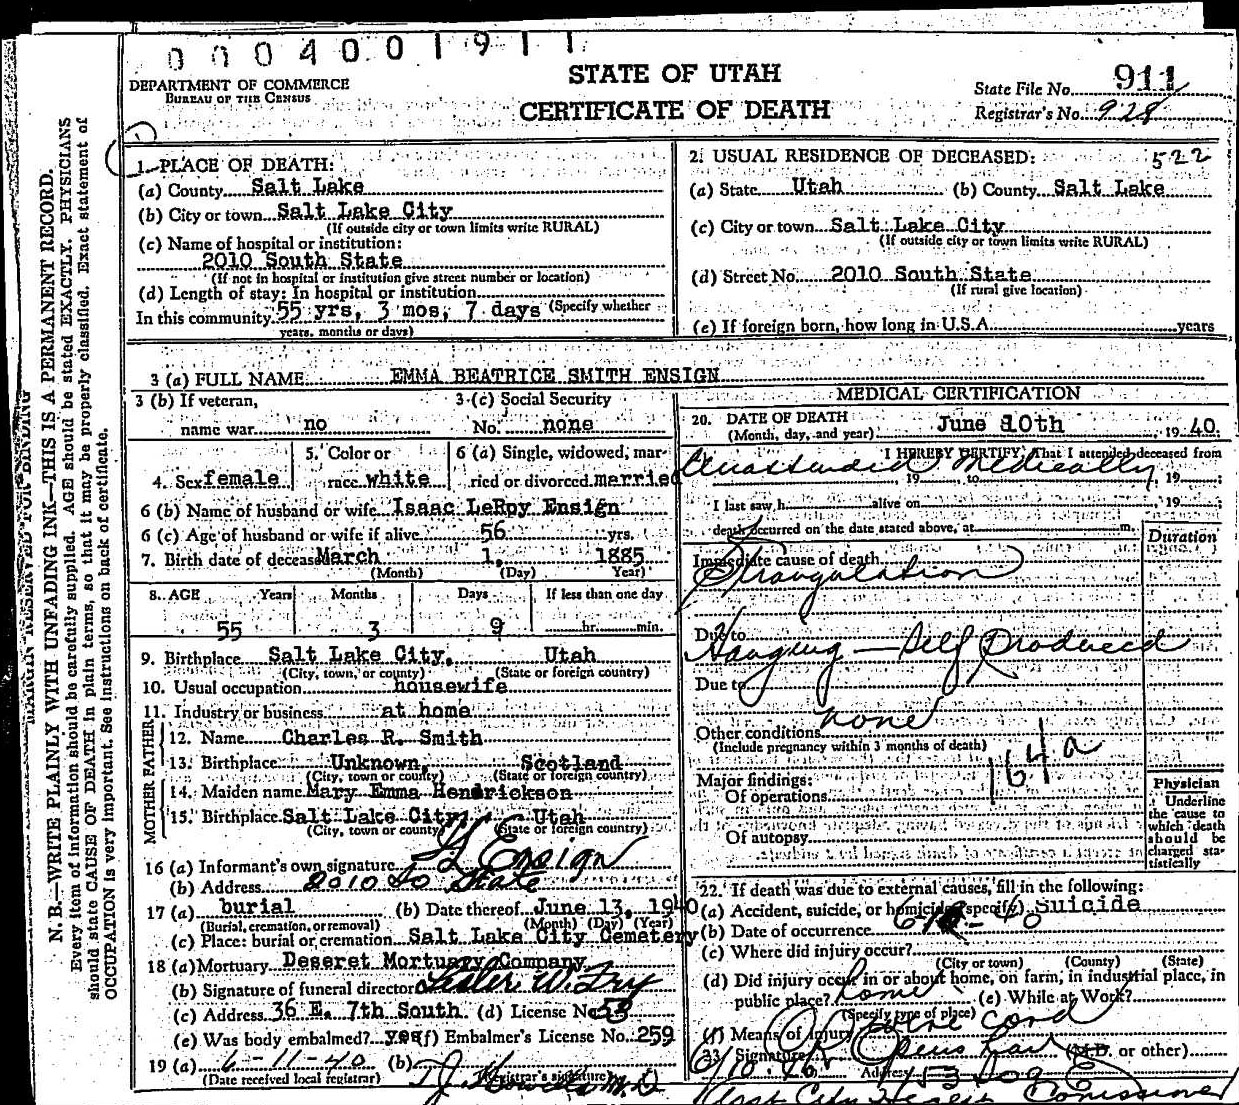 0 0 0 4 0 0 1 9 1 1
DEPARTMENT OF COMMERCE
BUREAU OF THE CENSUS
STATE OF UTAH
CERTIFICATE OF DEATH
State File No. 911
Registrar's No. 928
1. PLACE OF DEATH:
(a) County Salt Lake
(b) City or town Salt Lake City
(If outside city or town limits write RURAL)
(c) Name of hospital or institution:
2010 South State
(If not in hospital or institution give street number or location)
(d) Length of stay: In hospital or institution
In this community 55 yrs, 3 mos, 7 days (Specify whether
years, months or days)
2. USUAL RESIDENCE OF DECEASED: 522
(a) State Utah (b) County Salt Lake
(c) City or town Salt Lake City
(If outside city or town limits write RURAL)
(d) Street No. 2010 South State
(If rural give location)
(e) If foreign born, how long in U.S.A. years
3 (a) FULL NAME EMMA BEATRICE SMITH ENSIGN
3 (b) If veteran,
name war no
3 (c) Social Security
No. none
4. Sex female
5. Color or
race white
6 (a) Single, widowed, mar-
ried or divorced married
6 (b) Name of husband or wife Isaac LeRoy Ensign
6 (c) Age of husband or wife if alive 56 yrs.
7. Birth date of deceased March 1, 1885
(Month) (Day) Year)
8. AGE Years Months Days If less than one day
55 3 9 hr. min.
9. Birthplace Salt Lake City, Utah
(City, town, or county) (State or foreign country)
10. Usual occupation housewife
11. Industry or business at home
FATHER
12. Name Charles R. Smith
13. Birthplace Unknown, Scotland
(City, town or county) (State or foreign country)
MOTHER
14. Maiden name Mary Emma Hendrickson
15. Birthplace Salt Lake City, Utah
(City, town or county) (State or foreign country)
16 (a) Informant's own signature Ensign
(b) Address 2010 So State
17 (a) burial (b) Date thereof June 13, 1940
(Burial, cremation, or removal) (Month) (Day) (Year)
(c) Place: burial or cremation Salt Lake City Cemetery
18 (a) Mortuary Deseret Mortuary Company
(b) Signature of funeral director Lesler W. Fry
(c) Address 36 E. 7th South (d) License No. 53
(e) Was body embalmed? yes (f) Embalmer's License No. 259
19 (a) 6-11-40 (b) M.D
(Date received local registrar) Registrar's signature
MEDICAL CERTIFICATION
20. DATE OF DEATH
(Month, day, and year) June 10th, 19 40.
I HEREBY CERTIFY, That I attended deceased from
Unattended Medically
19 , to , 19 ;
I last saw h alive on , 19 ;
death occurred on the date stated above, at m.
Duration
Immediate cause of death
Strangulation
Due to
Hanging — Self Produced
Due to
Other conditions none
(Include pregnancy within 3 months of death)
164a
Major findings:
Of operations
Of autopsy
Physician
Underline
the cause to
which death
should be
charged sta-
tistically
22. If death was due to external causes, fill in the following:
(a) Accident, suicide, or homicide (specify) Suicide
(b) Date of occurrence
(c) Where did injury occur?
(City or town) (County) (State)
(d) Did injury occur in or about home, on farm, in industrial place, in
public place? home (e) While at Work?
(Specify type of place)
(f) Means of Injury cord
23. Signature (M.D. or other)
6/10 Address
City Health Comissioner
MARGIN RESERVED FOR BINDING
N. B.—WRITE PLAINLY WITH UNFADING INK—THIS IS A PERMANENT RECORD.
Every item of information should be carefully supplied. AGE should be stated EXACTLY. PHYSICIANS
should state CAUSE OF DEATH in plain terms, so that it may be properly classified. Exact statement of
OCCUPATION is very important. See instructions on back of certificate.